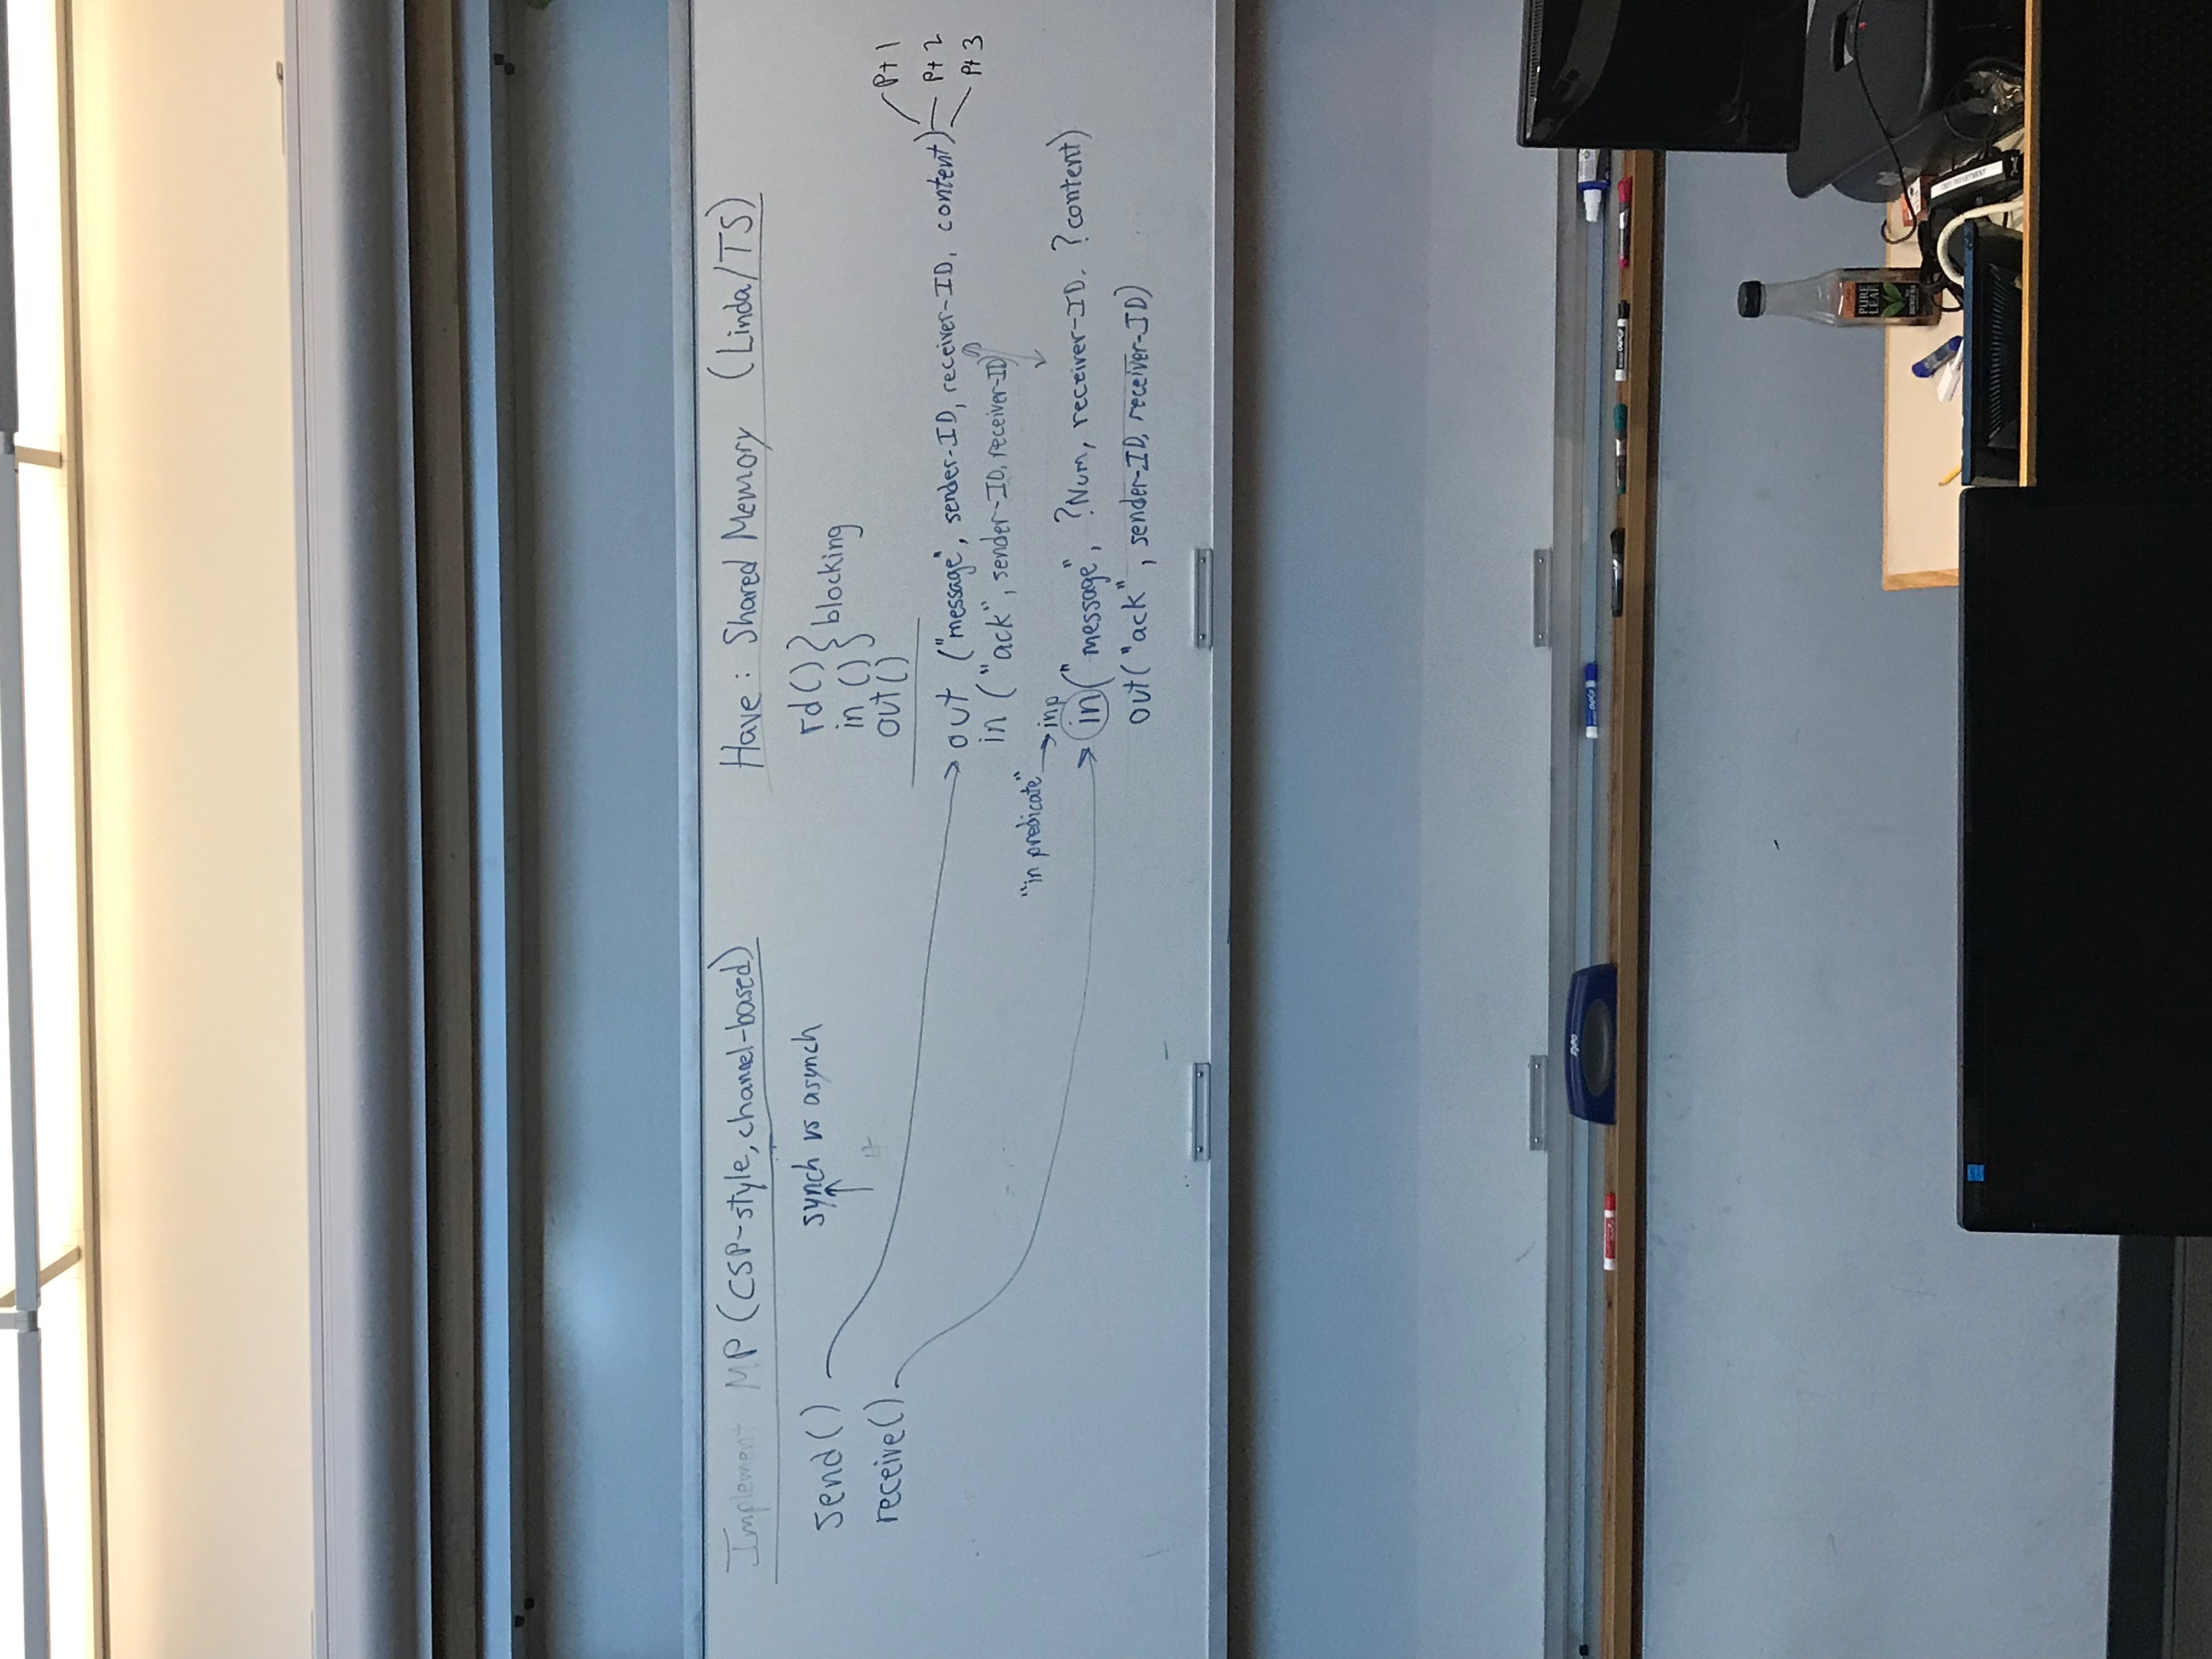 Implement MP (CSP-style, channel-based)
send()
synch vs asynch
receive()
Have: Shared Memory (Linda/TS)
rd()
in ()
blocking
out()
out ("message", sender-ID, receiver-ID, content)
Pt 1
Pt 2
Pt 3
in ("ack", sender-ID, receiver-ID)
"in predicate"
inp
in("message", ?Num, receiver-ID, ?content)
out("ack", sender-ID, receiver-ID)
EXPO
EXPO
EXPO
PURE
LEAF